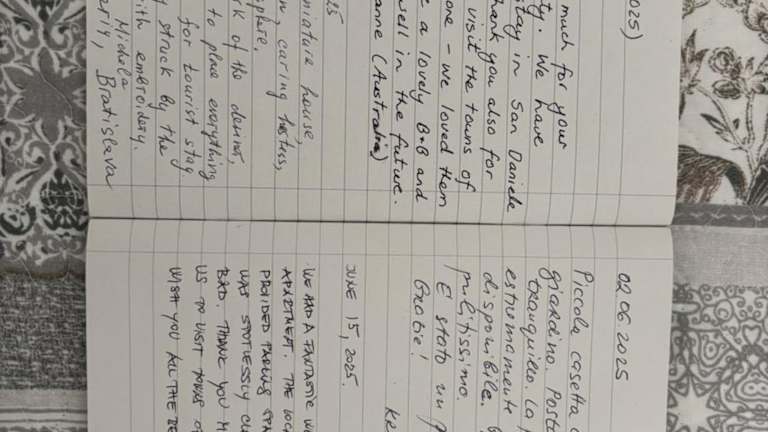 2025)
much for your
We have
stay in San Daniele
thank you also for
visit the towns of
one - we loved them
e a lovely B+B and
well in the future.
anne (Australia)
miniature house,
caring hostess,
of the detail,
to place everything
for tourist stay
struck by the
with embroidery.
Michela
Bratislava
02.06.2025
Piccola casetta
giardino. Post
tranquillo. La
estremamente
disponibile.
pulitissimo.
E' stato un
Grazie!
JUNE 15, 2025.
WE HAD A FANTASTIC
APARTMENT. THE
PROVIDED PARKING
WAS SPOTLESSLY
BAD. THANK YOU
US TO VISIT TOWNS
WISH YOU ALL THE